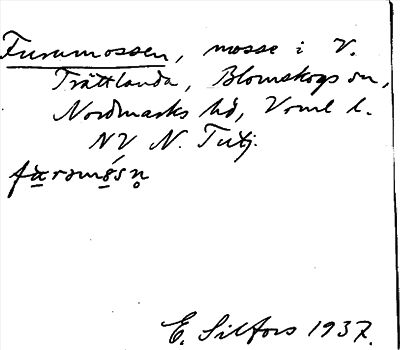 Furumossen, mosse i V.
Trättlanda, Blomskogs sn,
Nordmarks hd, Vrml l.
NV N. Tutj.
fu̲rəmó̲sn̥
E. Silfors 1937.